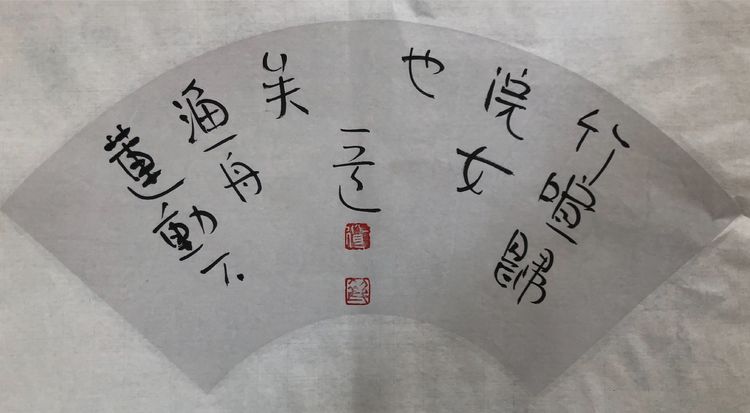 竹喧歸
浣女
也
蓮動下
漁舟
矣